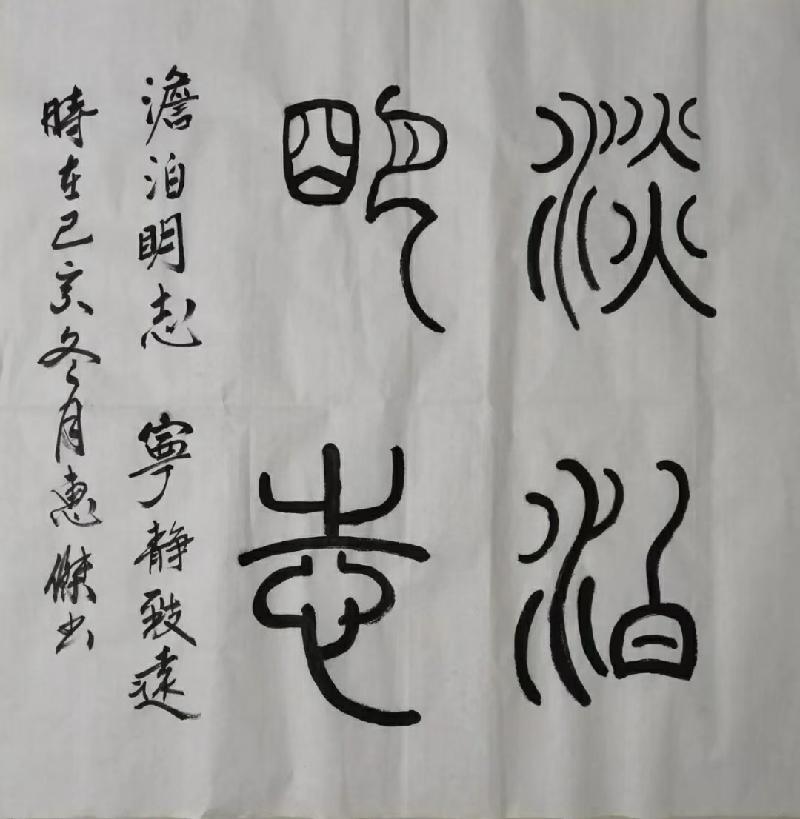 淡泊
明志
澹泊明志 寧静致遠
時在己亥冬月惠傑书